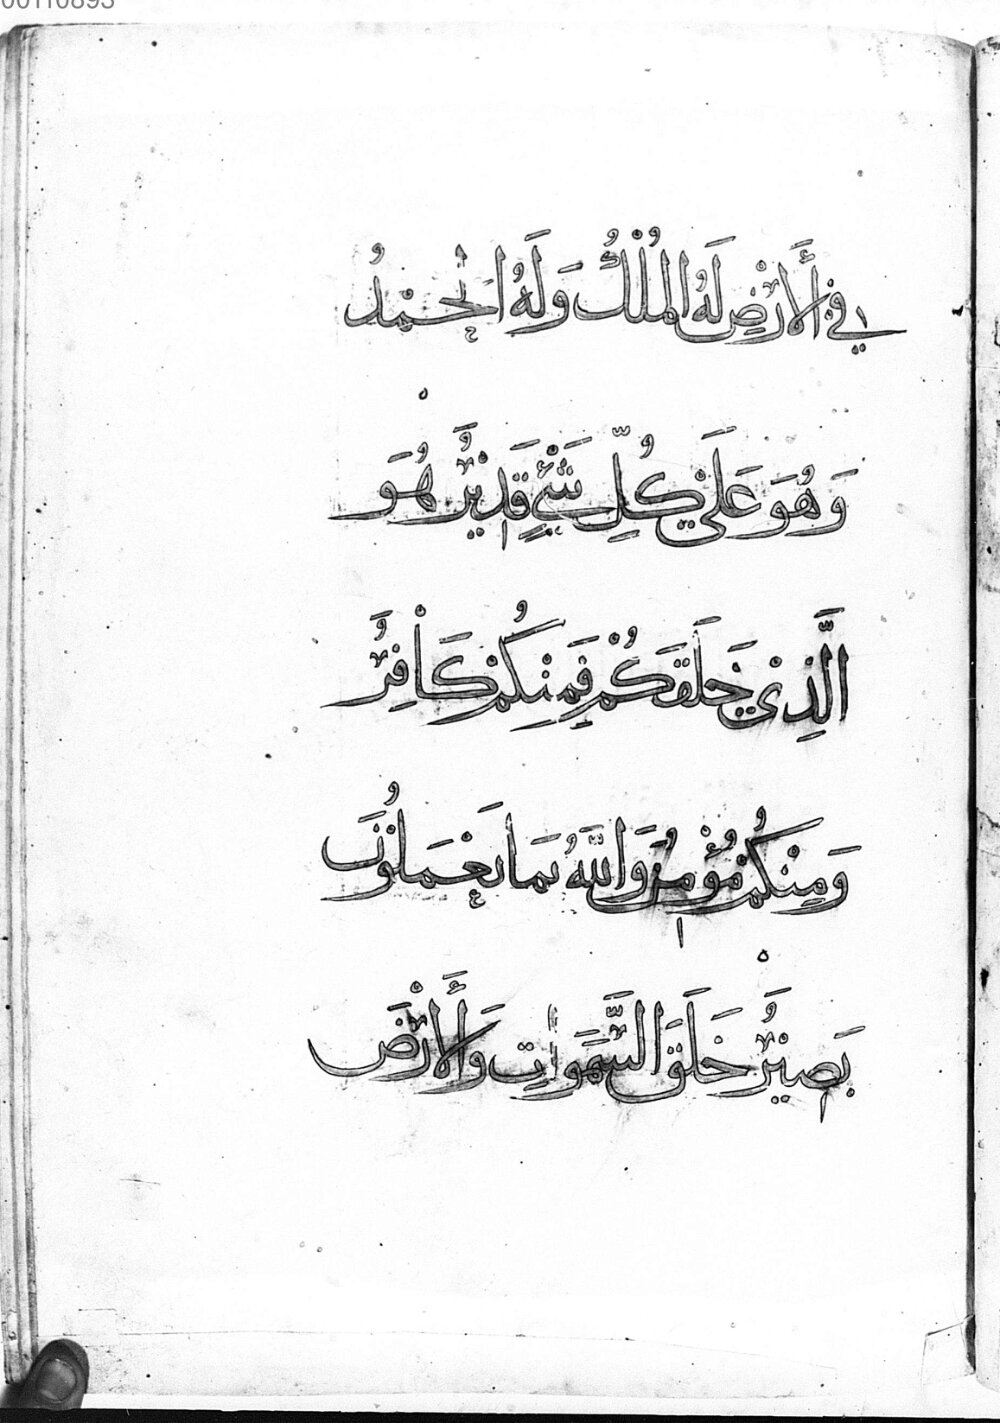 00110893
في الأَرْضِ لَهُ المُلْكُ وَلَهُ الحْمْدُ
وَهُوَ عَلَى كُلِّ شَيْءٍ قَدِيْرٌ هُوَ
الَّذِيْ خَلَقَكُمْ فَمِنْكُمْ كَافِرٌ
وَمِنْكُمْ مُؤْمِنٌ وَاللَّهُ بمَا تَعْمَلُوْنَ
بَصِيْرٌ خَلَقَ السَّمَوَاتِ وَالأَرْضَ